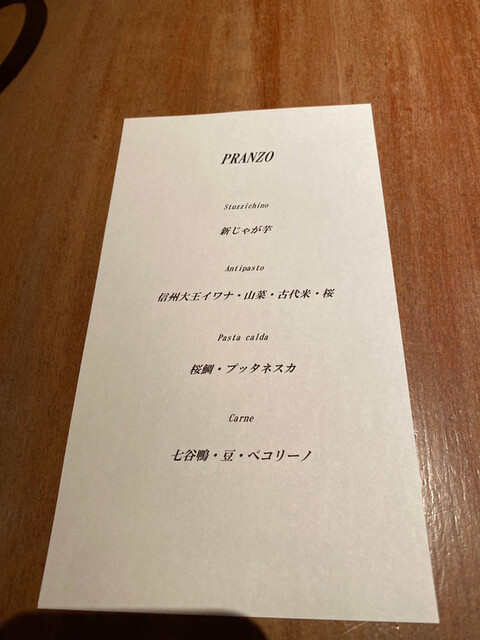 PRANZO
Stuzzichino
新じゃが芋
Antipasto
信州大王イワナ・山菜・古代米・桜
Pasta calda
桜鯛・プッタネスカ
Carne
七谷鴨・豆・ペコリーノ